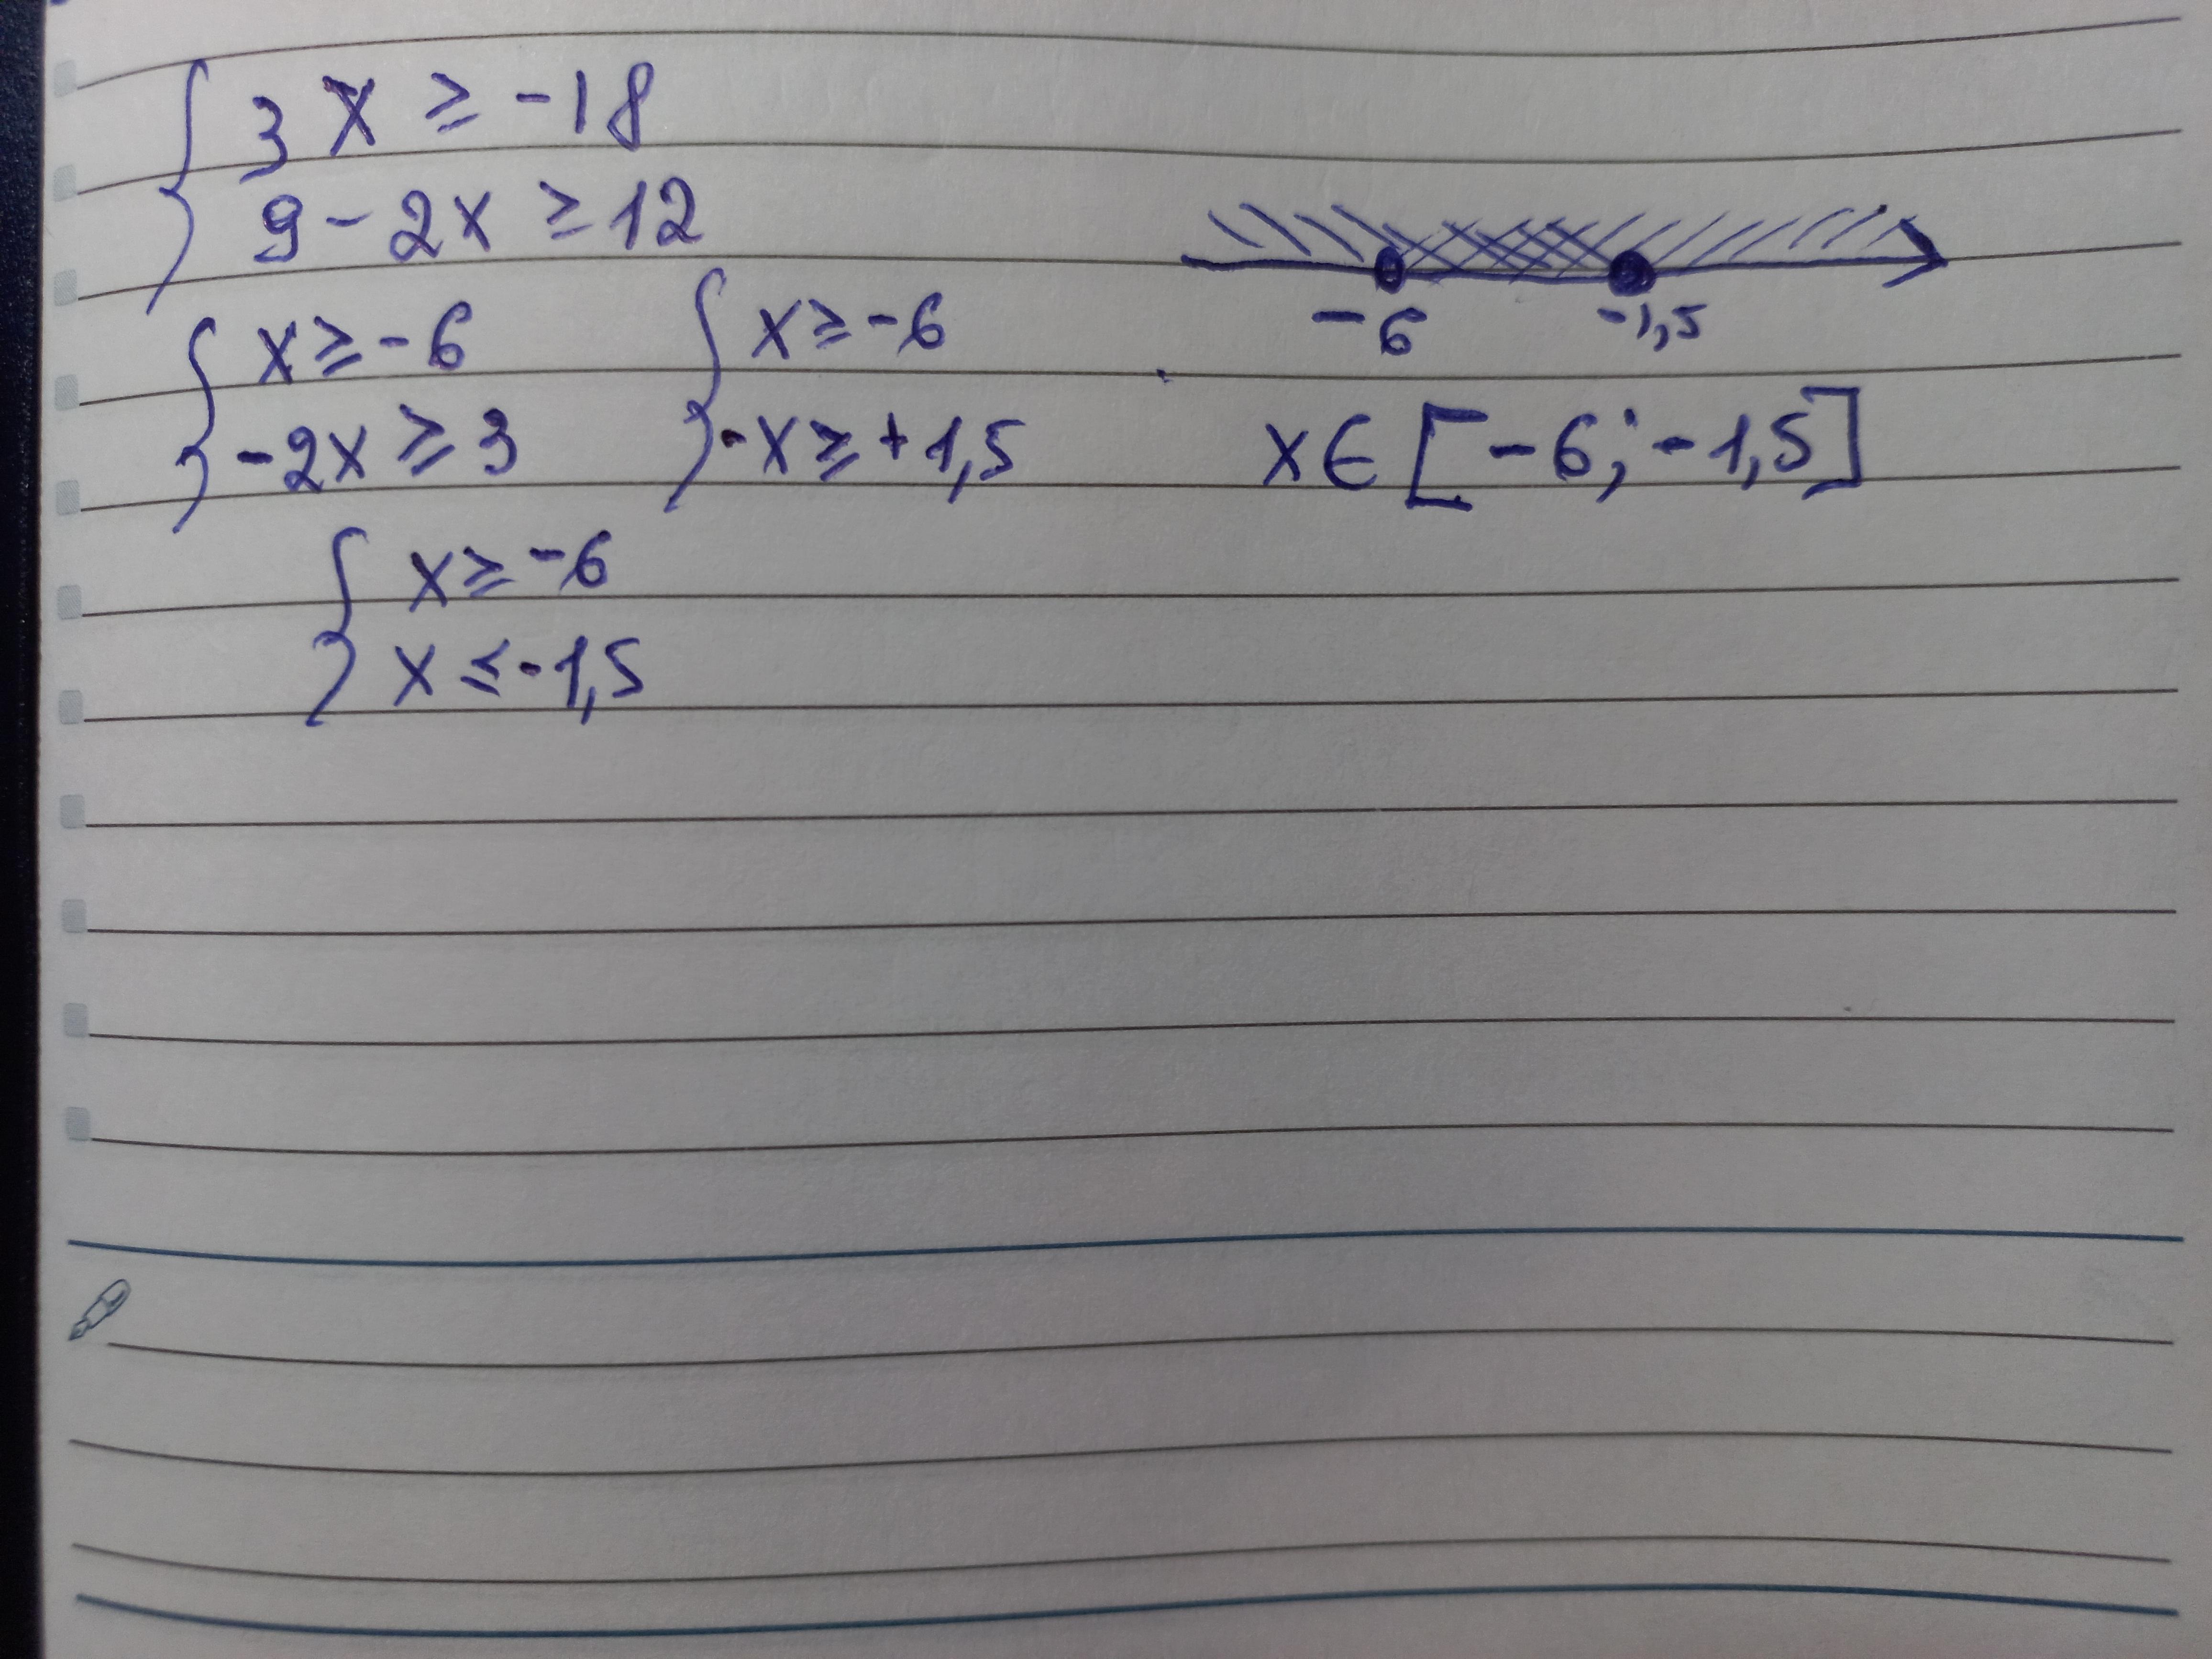 { 3x ≥ -18
9 - 2x ≥ 12
{ x ≥ -6
-2x ≥ 3
{ x ≥ -6
-x ≥ +1,5
{ x ≥ -6
x ≤ -1,5
-6 -1,5
x ∈ [-6; -1,5]